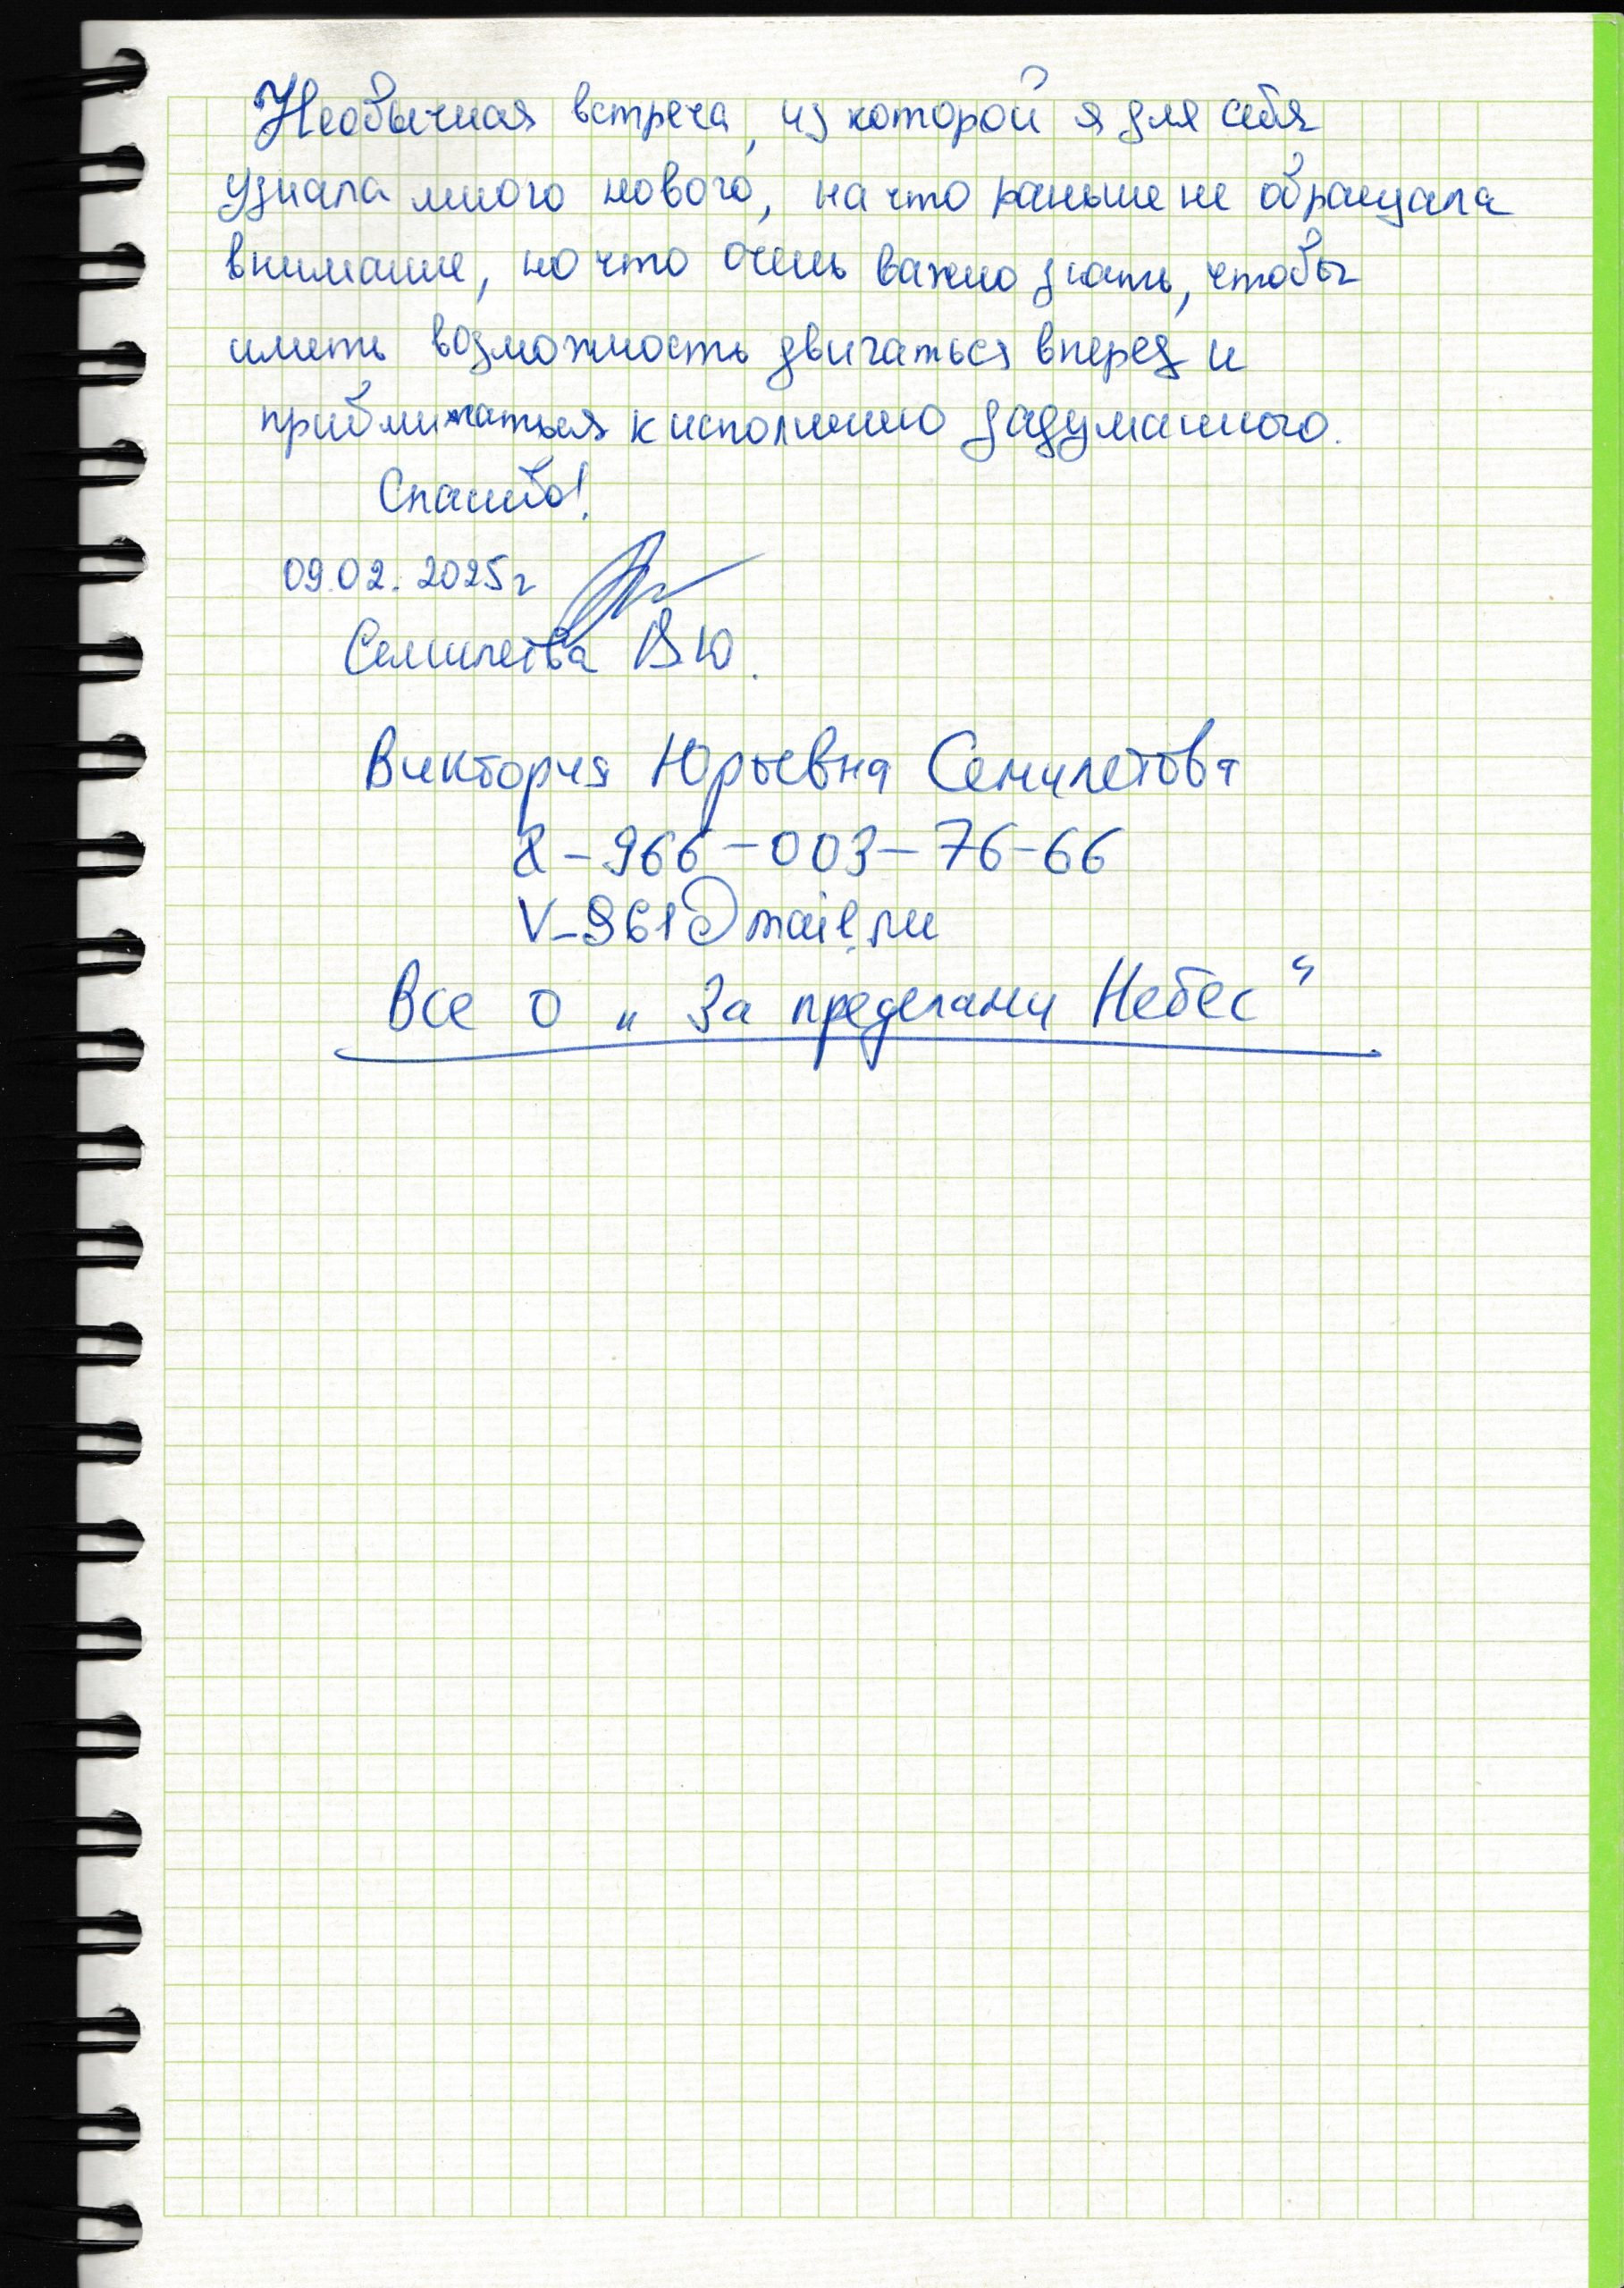 Необычная встреча, из которой я для себя
узнала много нового, на что раньше не обращала
внимание, но что очень важно знать, чтобы
иметь возможность двигаться вперед и
приближаться к исполнению задуманного.
Спасибо!
09.02.2025г
Семилетова В Ю.
Виктория Юрьевна Семилетова
8-966-003-76-66
V_961@mail.ru
Все о „За пределами Небес"